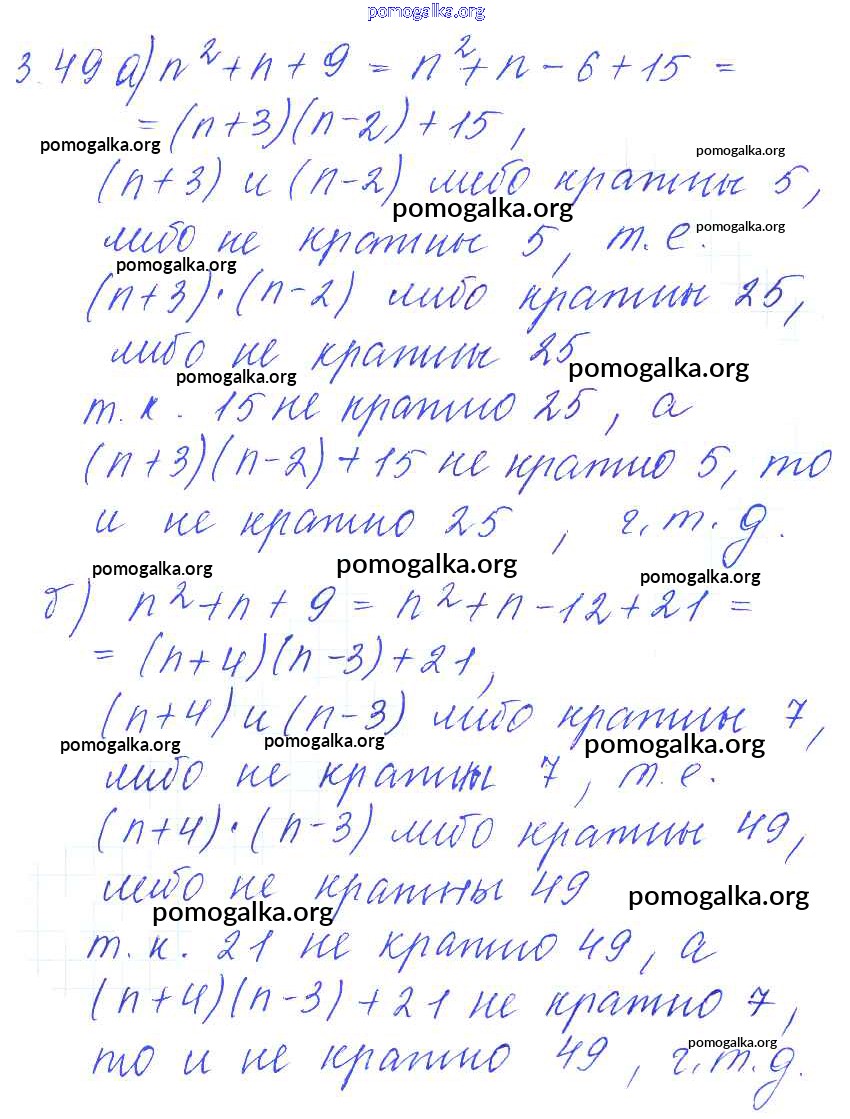 pomogalka.org
3.49 а) n² + n + 9 = n² + n − 6 + 15 =
= (n+3)(n−2) + 15,
pomogalka.org
pomogalka.org
(n+3) и (n−2) либо кратны 5,
pomogalka.org
либо не кратны 5, т.е.
pomogalka.org
pomogalka.org
(n+3)·(n−2) либо кратны 25,
либо не кратны 25
pomogalka.org
pomogalka.org
т.к. 15 не кратно 25, а
(n+3)(n−2) + 15 не кратно 5, то
и не кратно 25, ч.т.д.
pomogalka.org
pomogalka.org
pomogalka.org
б) n² + n + 9 = n² + n − 12 + 21 =
= (n+4)(n−3) + 21,
(n+4) и (n−3) либо кратны 7,
pomogalka.org
pomogalka.org
pomogalka.org
либо не кратны 7, т.е.
(n+4)·(n−3) либо кратны 49,
либо не кратны 49
pomogalka.org
pomogalka.org
т.к. 21 не кратно 49, а
(n+4)(n−3) + 21 не кратно 7,
pomogalka.org
то и не кратно 49, ч.т.д.